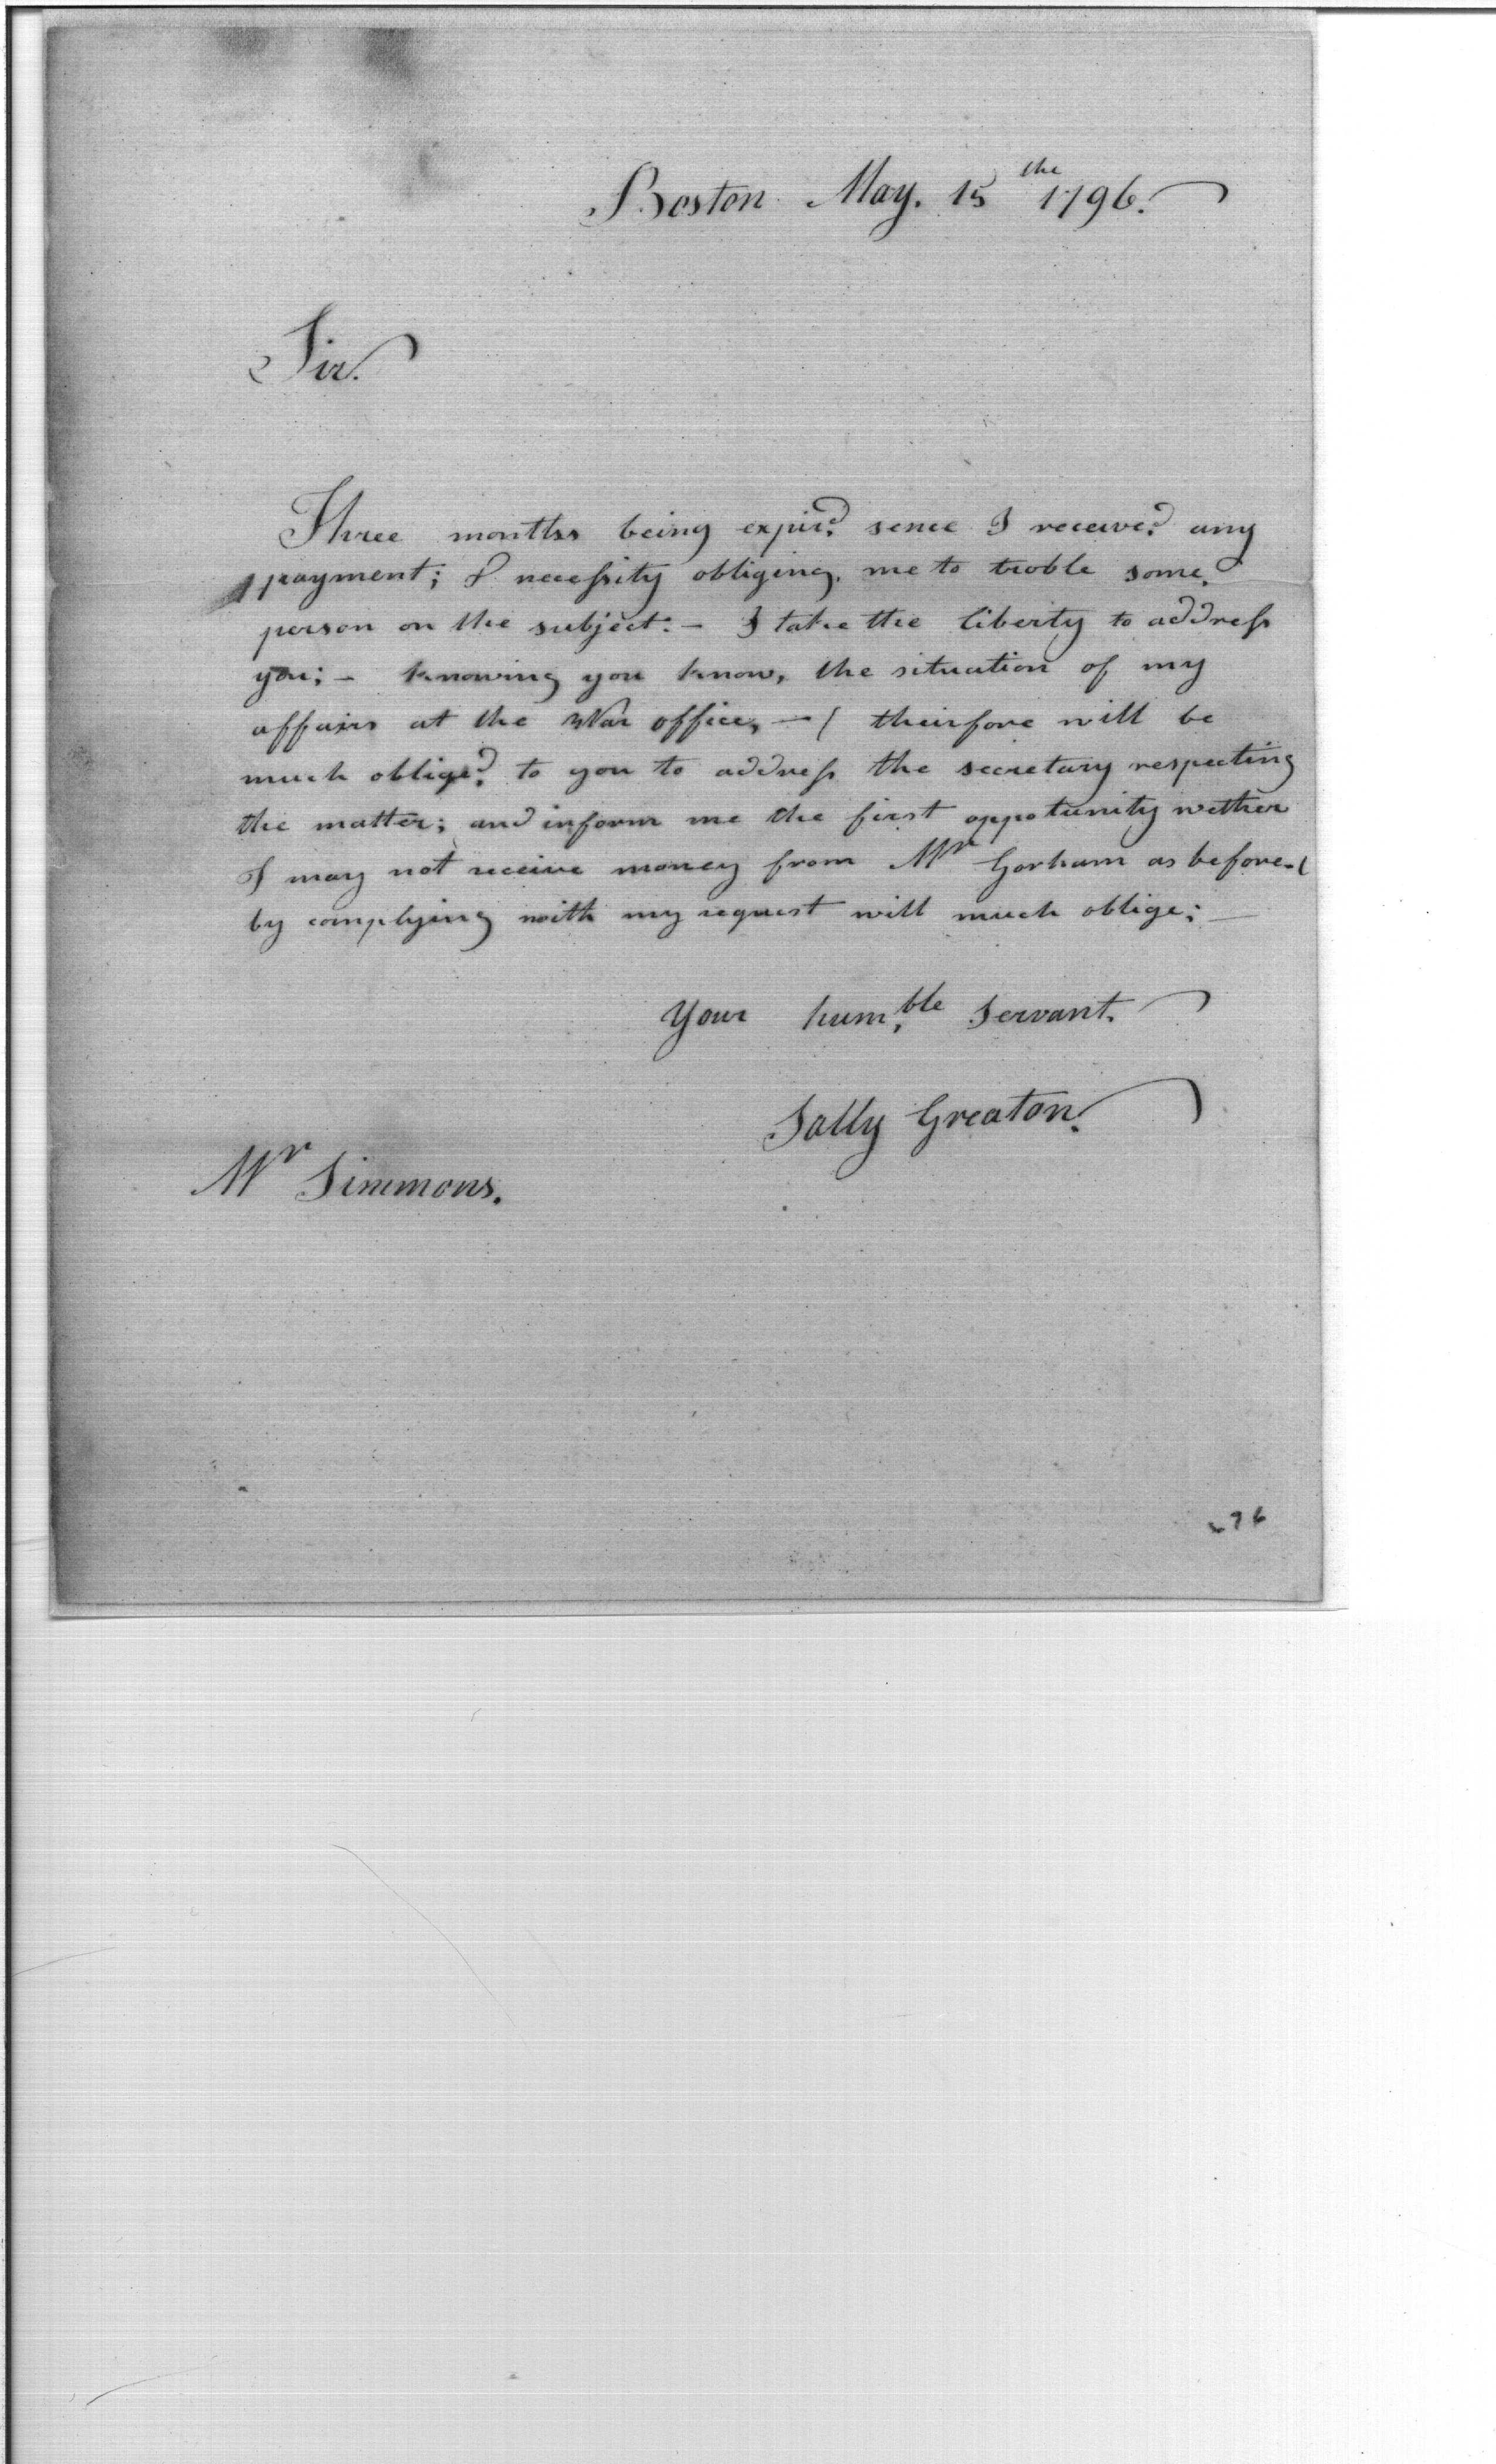 Boston May. 15 the 1796.
Sir.
Three months being expir'd sence I receive'd any
payment; & necessity obliging. me to troble some.
person on the subject: - I take the liberty to address
you; - knowing you know, the situation of my
affairs at the War office, - ( theirfore will be
much oblige'd to you to address the secretary respecting
the matter; and inform me the first oppotunity wether
I may not receive money from Mr Gorham as before-(
by complying with my request will much oblige; -
Your hum.ble Servant.
Sally Greaton.
Mr Simmons.